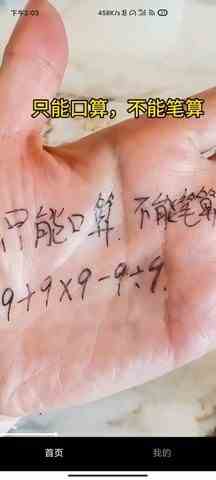 下午2:03
458K/s
只能口算，不能笔算
只能口算. 不能笔算
9+9×9-9÷9.
首页 我的